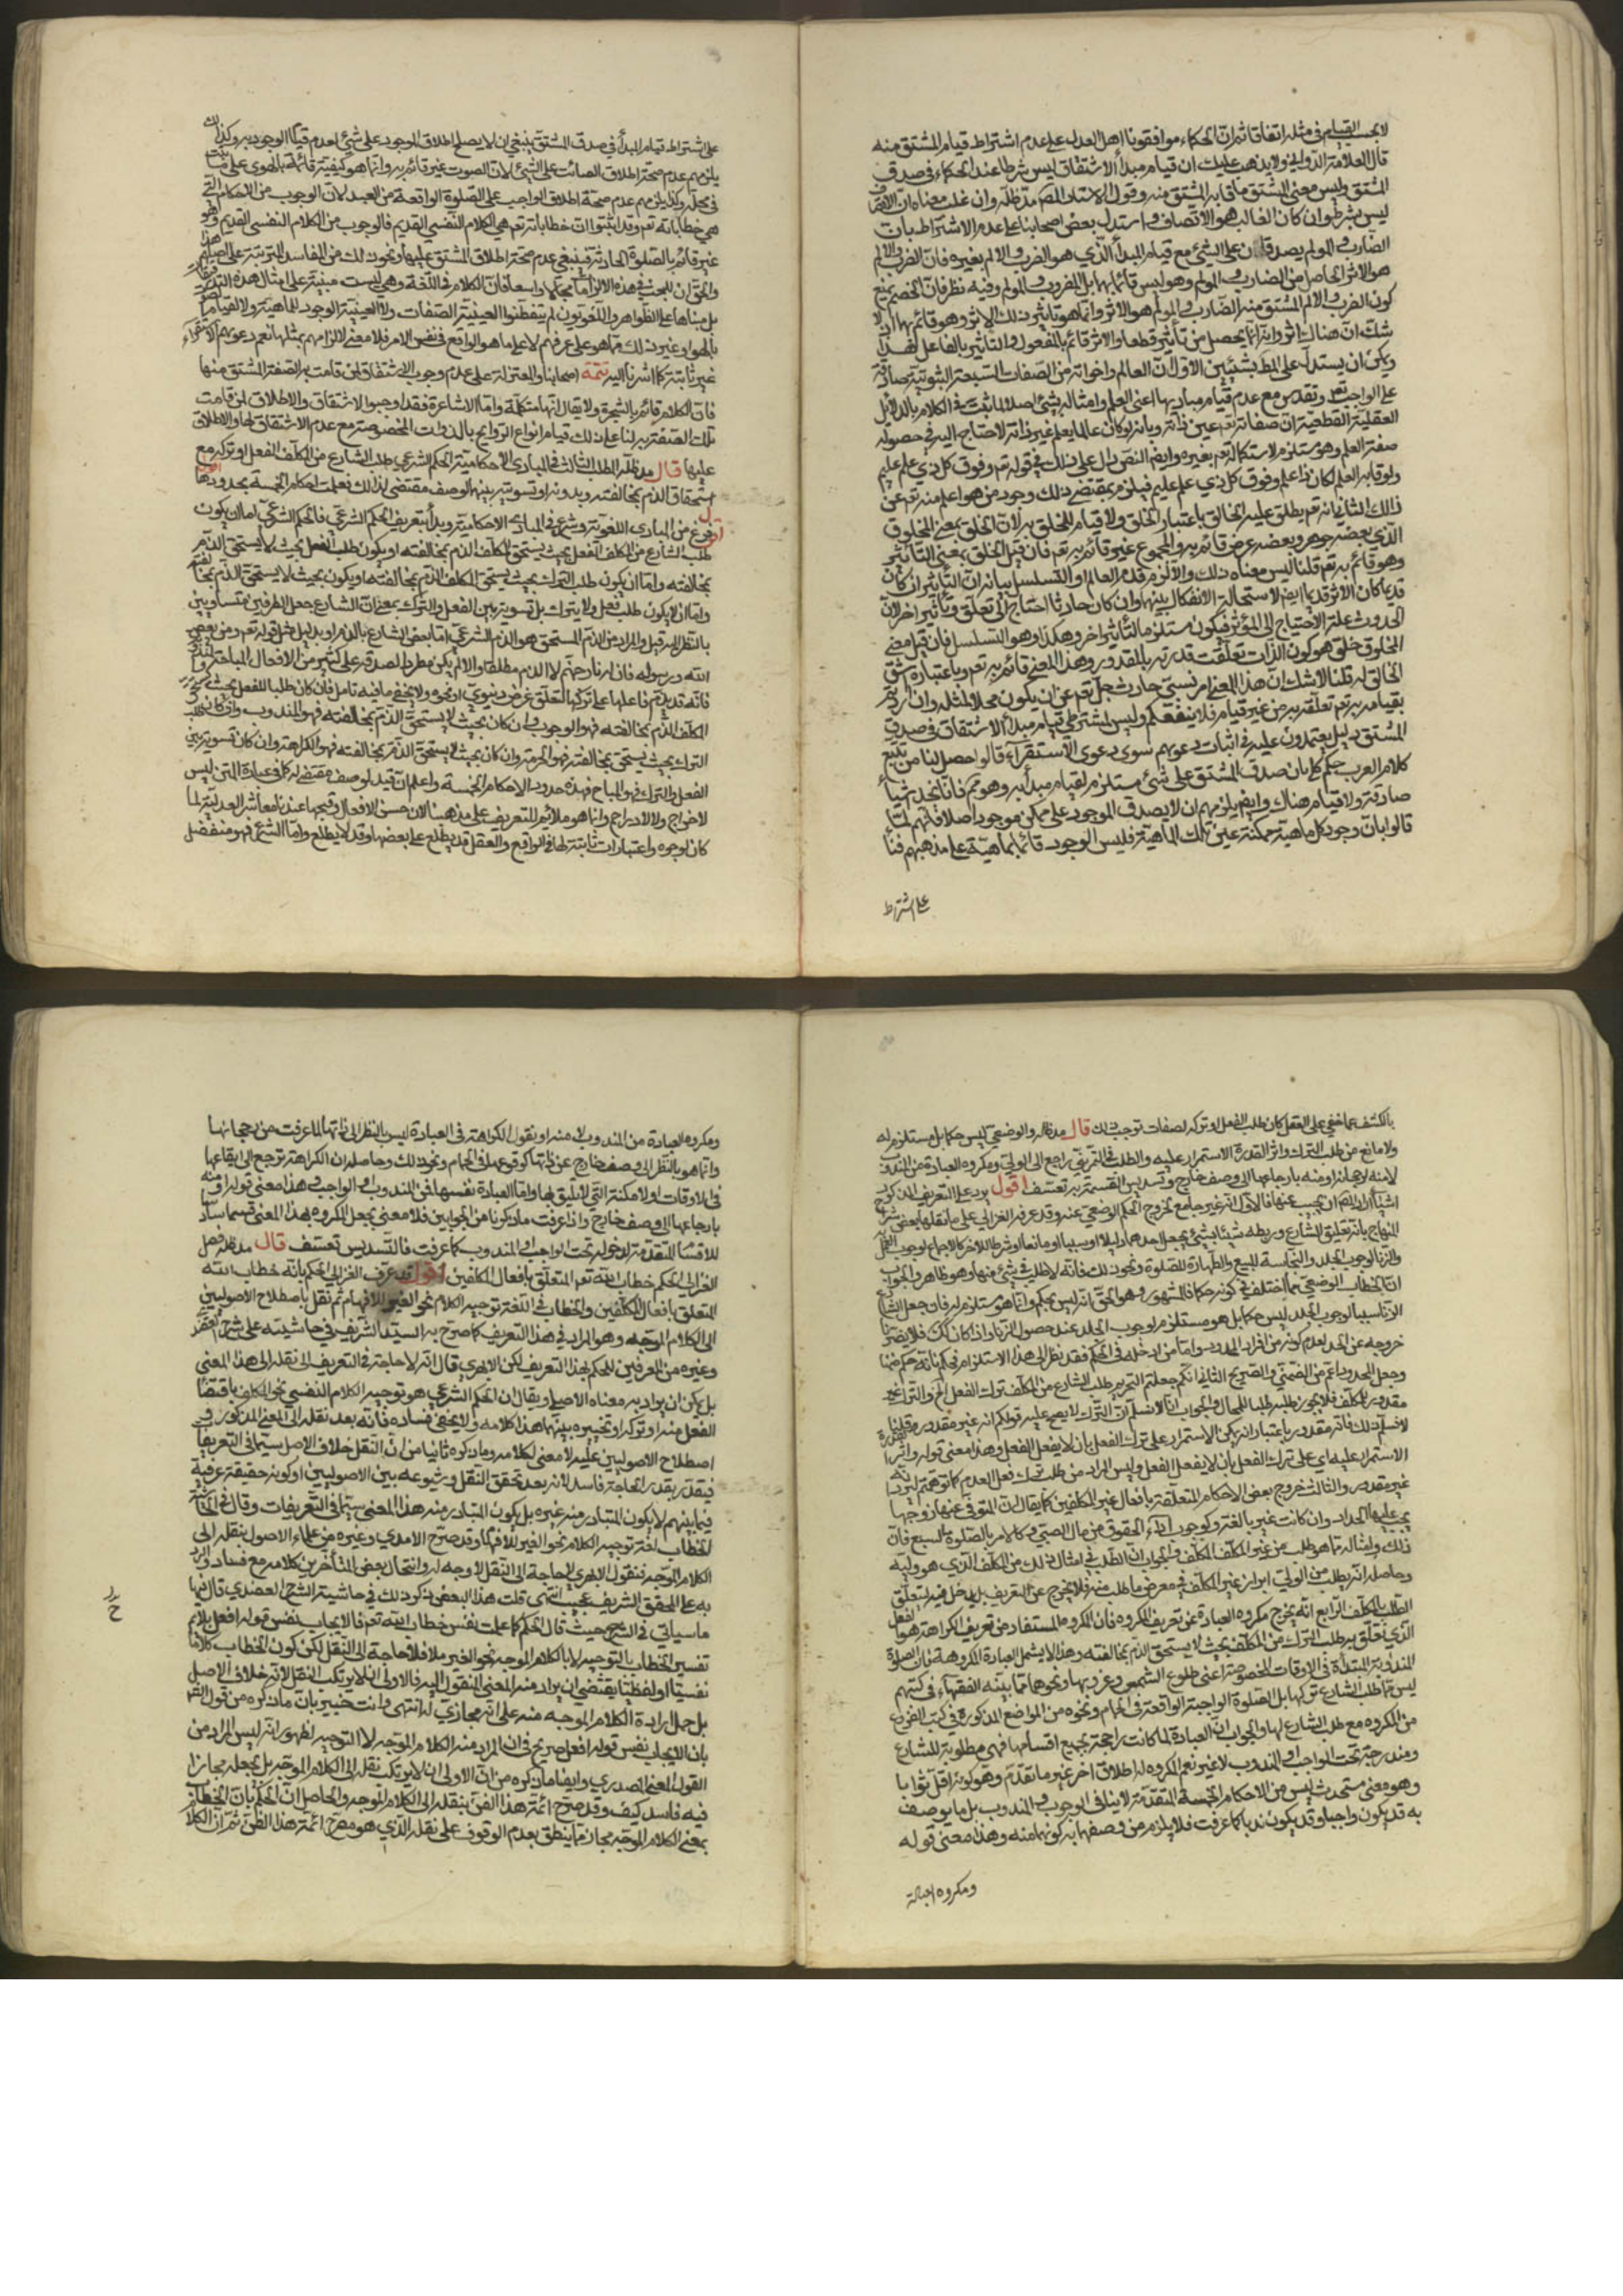 لا بحسب القيام في مثله اتفاقا ثم ان الحكماء موافقونا اهل العدل على عدم اشتراط قيام المشتق منه
قال العلامة الدواني ولا يذهب عليك ان قيام مبدأ الاشتقاق ليس شرطا عند الحكماء في صدق
المشتق وليس معنى المشتق ما قام به المشتق منه وقول الاستاد المصم مد ظله وان غلب معناه ان الاتصاف
ليس بشرط وان كان الغالب هو الاتصاف واستدل بعض اصحابنا على عدم الاشتراط بان
الضارب والمولم يصدقان على الشيء مع قيام المبدأ الذي هو الضرب والالم بغيره فان الضرب والالم
هو الاثر الحاصل من الضارب والمولم وهو ليس قائما بهما بل المضروب والمولم وفيه نظر فان الخصم يمنع
كون الضرب والالم المشتق منه الضارب والمولم هو الاثر وانما هو تاثير ذلك الاثر وهو قائم بهما اذ لا
شك ان هناك اثرا وانه انما يحصل من تأثير قطعا والاثر قائم بالمفعول والتأثير بالفاعل
ويمكن ان يستدل على المط بشيئين الاول ان العالم واخواته من الصفات السبعة الثبوتية صادقة
على الواجب تعم وتقدس مع عدم قيام مباديها اعني العلم وامثاله بشيء اصلا لما ثبت في الكلام بالدلائل
العقلية القطعية ان صفاته تعم عين ذاته وبانه لو كان عالما بعلم غير ذاته لاحتاج اليه في حصول
صفة العلم وهو مستلزم لاستكماله تعم بغيره وايضم النص دال على ذلك في قوله تعم وفوق كل ذي علم عليم
ولو قام به العلم لكان ذا علم وفوق كل ذي علم عليم فيلزم بمقتضى ذلك وجود من هو اعلم منه تعم عن
ذلك الثاني انه تعم يطلق عليه الخالق باعتبار الخلق ولا قيام للخلق به لان الخلق بمعنى المخلوق
الذي بعضه جوهر وبعضه عرض قائم به والمجموع غير قائم به تعم فان قيل الخلق بمعنى التأثير
وهو قائم به تعم قلنا ليس معناه ذلك والا لزم قدم العالم او التسلسل بيانه ان التأثير ان كان
قديما كان الاثر قديما ايضم لاستحالة الانفكاك بينهما وان كان حادثا احتاج الى تعلق وتأثير اخر لان
الحدوث علة الاحتياج الى المؤثر فيكون مستلزما لتأثير اخر وهكذا وهو التسلسل فان قيل معنى
المخلوق خلق هو كون الذات تعلقت قدرته بالمقدور وهذا المعنى قائم به تعم وباعتباره شق
الخالق له قلنا لا شك ان هذا المعنى امر نسبي حادث فجل تعم عن ان يكون محلا لمثله وان اردتم
بقيامه به تعم تعلقه به من غير قيام فلا ينفعكم وليس لمشترطي قيام مبدأ الاشتقاق في صدق
المشتق دليل يعتمدون عليه في اثبات دعوهم سوى دعوى الاستقراء قالوا حصل لنا من تتبع
كلام العرب حكم كلي بان صدق المشتق على شيء مستلزم لقيام مبدأ به وهو مم فانا نجد اشياء
صادقة ولا قيام هناك وايضم يلزمهم ان لا يصدق الموجود على ممكن موجود اصلا فانهم لما
قالوا بان وجود كل ماهية ممكنة عين تلك الماهية فليس الوجود قائما بماهية على مذهبهم فبنا
على اشتراط
على اشتراط قيام المبدأ في صدق المشتق ينبغي ان لا يصلح اطلاق الموجود على شيء لعدم قيام الوجود به وكذلك
يلزمهم عدم صحة اطلاق الصائت على الشيء لان الصوت غير قائم به وانما هو كيفية قائمة بالهوى على ما ثبت
في محله وكذا يلزمهم عدم صحة اطلاق الواجب على الصلوة الواقعة من العبد لان الوجوب من الاحكام التي
هي خطاباته تعم وقد اثبتوا ان خطاباته تعم هي الكلام النفسي القديم فالوجوب من الكلام النفسي القديم وهو
غير قائم بالصلوة الحادثة فينبغي عدم صحة اطلاق المشتق عليها ونحو ذلك من المفاسد المترتبة على اصلهم هذا
والحق ان للبحث في هذه الالزامات مجالا واسعا فان الكلام في اللغة وهي ليست مبنية على امثال هذه التدقيقات
بل مبناها على الظواهر واللغويون لم يتفطنوا العينية الصفات ولا العينية الوجود للماهية ولا لقيام
بالهوا وغير ذلك مما هو على عرفهم لا على ما هو الواقع في نفس الامر فلا معنى لالزامهم بمثلها نعم دعوهم الاستقراء
غير ثابتة كما اشرنا اليه تتمة اصحابنا والمعتزلة على عدم وجوب الاشتقاق لمن قامت به الصفة المشتق منها
فان الكلام قائم بالشجرة ولا يقال انها متكلمة واما الاشاعرة فقد اوجبوا الاشتقاق والاطلاق لمن قامت
تلك الصفة به لنا على ذلك قيام انواع الروايح بالذوات المخصوصة مع عدم الاشتقاق لها والاطلاق
عليها قال مد ظله الطلب الثالث في المبادي الاحكامية الحكم الشرعي طلب الشارع من المكلف الفعل او تركه مع
استحقاق الذم بمخالفته وبدونه او تسويته بينهما لوصف مقتضي لذلك فعلمت احكام الخمسة بحدودها اقول
فرغ من المبادي اللغوية وشرع في المبادي الاحكامية وبدأ بتعريف الحكم الشرعي فالحكم الشرعي اما ان يكون
طلب الشارع من المكلف الفعل بحيث يستحق المكلف الذم بمخالفته او يكون طلب الفعل بحيث لا يستحق الذم
بمخالفته واما ان يكون طلب الترك بحيث يستحق المكلف الذم بمخالفته او يكون بحيث لا يستحق الذم بمخالفته
واما ان لا يكون طلب فعل ولا يترك بل تسوية بين الفعل والترك بمعنى ان الشارع جعل الطرفين متساويين
بالنظر اليه قبل والمراد من الذم المستحق هو الذم الشرعي اما بنص الشارع بالذم او بدليل مثل قوله تعم ومن يعص
الله ورسوله فان له نار جهنم لا الذم مطلقا والا لم يكن مطردا لصدقه على كثير من الافعال المباحة
فانه قد يذم فاعلها على تركها لتعلق غرض دنيوي او نحوه ولا يخفى ما فيه تامل فان كان طلبا للفعل بحيث يستحق
المكلف الذم بمخالفته فهو الوجوب وان كان بحيث لا يستحق الذم بمخالفته فهو المندوب وان كان طلب
الترك بحيث يستحق بمخالفته فهو الحرمة وان كان بحيث لا يستحق الذم بمخالفته فهو الكراهة وان كان تسوية بين
الفعل والترك فهو المباح فهذه حدود الاحكام الخمسة واعلم ان قيد لوصف مقتضي له كما في عبارة المتن ليس
لاخراج ولا لادراج وانما هو ملائم للتعريف على مذهبنا لان حسن الافعال وقبحها عندنا معاشر العدلية لما
كان لوجوه واعتبارات ثابتة لها في الواقع والعقل قد يطلع على بعضها وقد لا يطلع واما الشرع فهو منفصل
بالكشف عما خفي على العقل كان طلب الفعل او تركه لصفات توجب ذلك قال مد ظله والوضعي ليس حكما بل مستلزم له
ولا مانع من طلب الترك واثر القدرة الاستمرار عليه والطلب في التمريني راجع الى الولي ومكروه العبادة من المندوب
لا منه او مجاز او منه بارجاعها الى وصف خارج وتسديس القسمة به تعسف اقول يرد على التعريف المذكور
اشياء الا انه يجيب عنها فالاول انه غير جامع لخروج الحكم الوضعي عنه وقد عرفه الغزالي على ما نقله بعض شراح
المنهاج بانه تعليق الشارع وربطه شيئا بشيء بجعل احدهما دليلا او سببا او مانعا او شرطا للاخر كالاجماع لوجوب العمل
والزنا لوجوب الجلد والنجاسة للبيع والطهارة للصلوة ونحو ذلك فانه لا طلب في شيء منها وهو ظاهر والجواب
ان الخطاب الوضعي مما اختلف في كونه حكما فالمشهور وهو الحق انه ليس بحكم وانما هو مستلزم له فان جعل الشارع
الزنا سببا لوجوب الجلد ليس حكما بل هو مستلزم لوجوب الجلد عند حصول الزنا واذا كان كك فلا يضرنا
خروجه عن الحد لعدم كونه من افراد المحدود واما من ادخله في الحكم فقد نظر الى هذا الاستلزام فحكم بانه حكم ضمنا
وجعل المحدود اعم من الضمني والصريح الثاني انكم جعلتم التحريم طلب الشارع من المكلف ترك الفعل الخ والترك غير
مقدور للمكلف فلا يجوز طلبه طلبا للمحال والجواب انا لا نسلم ان الترك لا يصح عليه قولكم انه غير مقدور قلنا
لا نسلم ذلك فانه مقدور باعتبار انه يمكن الاستمرار على ترك الفعل بان لا يفعل الفعل وهذا معنى قوله واثر القدرة
الاستمرار عليه اي على ترك الفعل بان لا يفعل الفعل وليس المراد من طلب ترك فعل العدم كما توهمتم ليرد انه
غير مقدور والثالث خروج بعض الاحكام المتعلقة بأفعال غير المكلفين كما يقال ان المتوفى عنها زوجها
يجب عليها الحداد وان كانت غير بالغة وكوجوب اداء الحقوق من مال الصبي وكالامر بالصلوة لسبع فان
ذلك وامثاله مما هو طلب من غير المكلف المكلف والجواب ان الطلب في امثال ذلك من المكلف الذي هو وليه
وحاصله انه يطلب من الولي ابراز غير المكلف في معرض ما طلب منه فلا يخرج عن التعريف بل يدخل فيه لتعلق
الطلب بالمكلف الرابع انه يخرج مكروه العبادة عن تعريف المكروه فان المكروه المستفاد من تعريف الكراهة هو الفعل
الذي تعلق به طلب الترك من المكلف بحيث لا يستحق الذم بمخالفته وهذا لا يشمل العبادة المكروهة فان الصلوة
المندوبة المبتدأة في الاوقات المخصوصة اعني طلوع الشمس وغروبها ونحوهما مما بينه الفقهاء في كتبهم
ليس مما طلب الشارع تركها بل الصلوة الواجبة الواقعة في الحمام ونحوه من المواضع المذكورة في كتب الفروع
من المكروه مع طلب الشارع لها والجواب ان العبادة لما كانت راجحة بجميع اقسامها فهي مطلوبة للشارع
ومندرجة تحت الواجب او المندوب لا غير نعم المكروه له اطلاق اخر غير ما تقدم وهو كونه اقل ثوابا
وهو معنى مستحدث ليس من الاحكام الخمسة المتقدمة لا ينافي الوجوب والمندوب بل ما يوصف
به قد يكون واجبا وقد يكون ندبا كما عرفت فلا يلزم من وصفها به كونها منه وهذا معنى قوله
ومكروه العبادة
ومكروه العبادة من المندوب لا منه او يقول الكراهة في العبادة ليس بالنظر الى ذاتها لما عرفت من رجحانها
وانما هو بالنظر الى وصف خارج عن ذاتها كوقوعها في الحمام ونحو ذلك وحاصله ان الكراهة ترجع الى ايقاعها
في الاوقات او الامكنة التي لا تليق بها واما العبادة نفسها فمن المندوب او الواجب وهذا معنى قوله او منه
بارجاعها الى وصف خارج واذا عرفت ما ذكرنا من الجوابين فلا معنى بجعل المكروه بهذا المعنى قسما سادسا
للاقسام المتقدمة لدخوله تحت الواجب او المندوب كما عرفت فالتسديس تعسف قال مد ظله فصل
الغزالي الحكم خطاب الله تعم المتعلق بافعال المكلفين اقول قد عرف الغزالي الحكم بانه خطاب الله
المتعلق بأفعال المكلفين والخطاب في اللغة توجيه الكلام نحو الغير للافهام ثم نقل باصطلاح الاصوليين
الى الكلام الموجه وهو المراد في هذا التعريف كما صرح به السيد الشريف في حاشيته على شرح المختصر
وغيره من المعرفين للحكم بهذا التعريف لكن الابهري قال انه لا حاجة في التعريف الى نقله الى هذا المعنى
بل يمكن ان يراد به معناه الاصلي ويقال ان الحكم الشرعي هو توجيه الكلام النفسي نحو المكلف باقتضاء
الفعل منه او تركه او تخييره بينهما هذا كلامه ولا يخفى فساده فانه بعد نقله الى المعنى المذكور في
اصطلاح الاصوليين عليه لا معنى لكلامه وما ذكره ثانيا من ان النقل خلاف الاصل سيما في التعريفات
فيقدر بقدر الحاجة فاسد لانه بعد تحقق النقل وشيوعه بين الاصوليين او كونه حقيقة عرفية
فيما بينهم لا يكون المتبادر منه غيره بل يكون المتبادر منه هذا المعنى سيما في التعريفات وقال في الحاشية
الخطاب لغة توجيه الكلام نحو الغير للافهام وقد صرح الامدي وغيره من علماء الاصول بنقله الى
الكلام الموجه فنقول الابهري لا حاجة الى النقل لا وجه له وانتحال بعض المتأخرين كلامه مع فساده والرد
به على المحقق الشريف عجيب انتهى قلت هذا البعض ذكر ذلك في حاشية الشرح العضدي قال فيها
ما سيأتي في الشرح حيث قال الحكم كما علمت نفس خطاب الله تعم فالايجاب نفس قوله افعل يلايم
تفسير الخطاب بالتوجيه لا بالكلام الموجه نحو الغير ملا فلا حاجة الى النقل لكن كون الخطاب كلاما
نفسيا او لفظيا يقتضي ان يراد منه المعنى المنقول اليه فالاولى ان لا يرتكب النقل لانه خلاف الاصل
بل حمل ارادة الكلام الموجه منه على انه مجازي له انتهى وانت خبير بان ما ذكره من قول الش
بان الايجاب نفس قوله افعل صريح في ان المراد منه الكلام الموجه لا التوجيه لظهور انه ليس المراد من
القول المعنى المصدري وايضا ما ذكره من ان الاولى ان لا يرتكب نقله الى الكلام الموجه بل بجعله مجازا
فيه فاسد كيف وقد صرح ائمة هذا الفن بنقله الى الكلام الموجه والحاصل ان الحكم بان الخطاب
بمعنى الكلام الموجه مجاز مما ينطق بعدم الوقوف على نقله الذي هو مصرح ائمة هذا الفن ثم ان الكلا